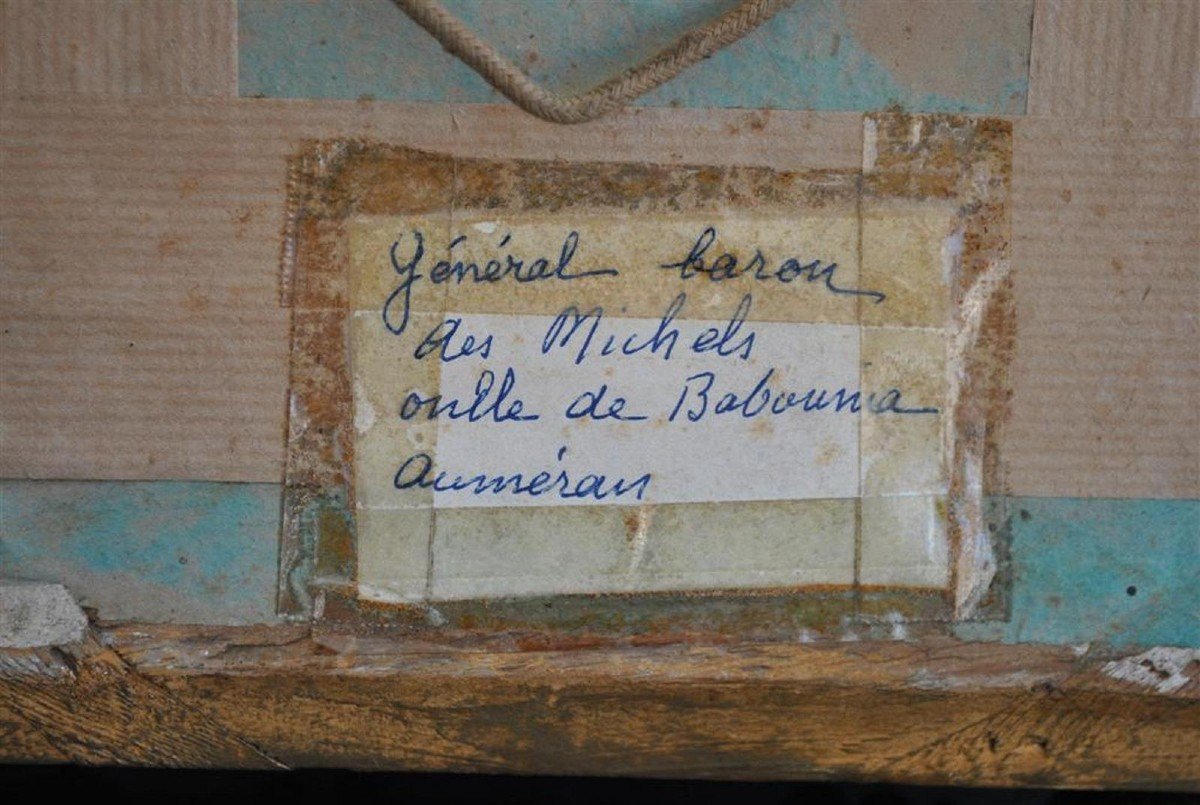 Général baron
des Michels
oncle de Babouna
Auméran